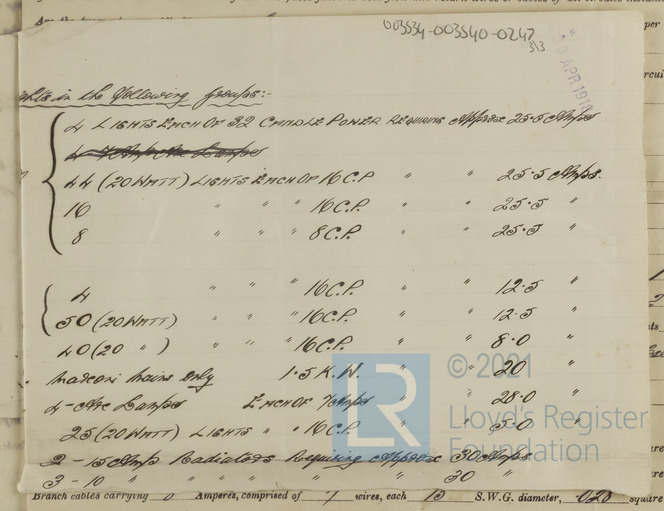 003534-003540-0247
3/3
APR 1910
ghts in the following Groups:-
4 LIGHTS EACH OF 32 CANDLE POWER REQUIRING Approx 25.5 Amps
44 (20 WATT) LIGHTS EACH OF 16 C.P. " " 25.5 Amps.
16 " " " 16 C.P. " " 25.5 "
8 " " " 8 C.P. " " 25.5 "
4 " " " 16 C.P. " " 12.5 "
50 (20 WATT) " " " 16 C.P. " " 12.5 "
40 (20 " ) " " " 16 C.P. " " 8.0 "
Marconi Mains Only 1.5 K.W. " " 20 "
4 - Arc Lamps EACH OF 7 Amps " " 28.0 "
25 (20 WATT) LIGHTS " " 16 C.P. " " 5.0 "
2 - 15 Amp Radiators Requiring Approx 30 Amps
3 - 10 " " " " " 30 "
Branch cables carrying Amperes, comprised of 7 wires, each S.W.G. diameter, .028 square
© 2021
Lloyd's Register
Foundation
LR